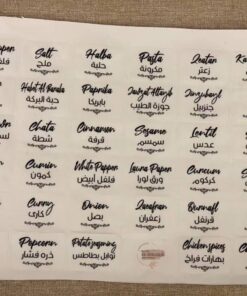 Salt
ملح
Halba
حلبة
Pasta
مكرونة
Zaatar
زعتر
Habat Al Baraka
حبة البركة
Paprika
بابريكا
Jawzat Altayb
جوزة الطيب
Zingubayl
جنزبيل
Chata
شطة
Cinnamon
قرفة
Sesame
سمسم
Lentil
عدس
Cumin
كمون
White Pepper
فلفل أبيض
ورق لورا
Curcum
كركوم
Curry
كاري
Onion
بصل
Zaafran
زعفران
Qurnufl
قرنفل
Popcorn
ذره فشار
توابل بطاطس
Chicken spices
بهارات فراخ